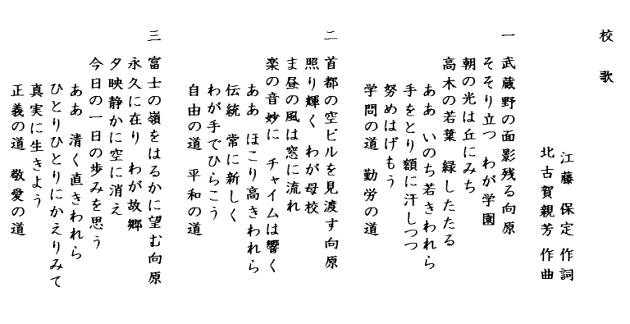 校歌
江藤 保定 作詞
北古賀親芳 作曲
一 武蔵野の面影残る向原
そそり立つ わが学園
朝の光は丘にみち
高木の若葉 緑したたる
ああ いのち若きわれら
手をとり額に汗しつつ
努めはげもう
学問の道 勤労の道
二 首都の空ビルを見渡す向原
照り輝く わが母校
ま昼の風は窓に流れ
楽の音妙に チャイムは響く
ああ ほこり高きわれら
伝統 常に新しく
わが手でひらこう
自由の道 平和の道
三 富士の嶺をはるかに望む向原
永久に在り わが故郷
夕映静かに空に消え
今日の一日の歩みを思う
ああ 清く直きわれら
ひとりひとりにかえりみて
真実に生きよう
正義の道 敬愛の道